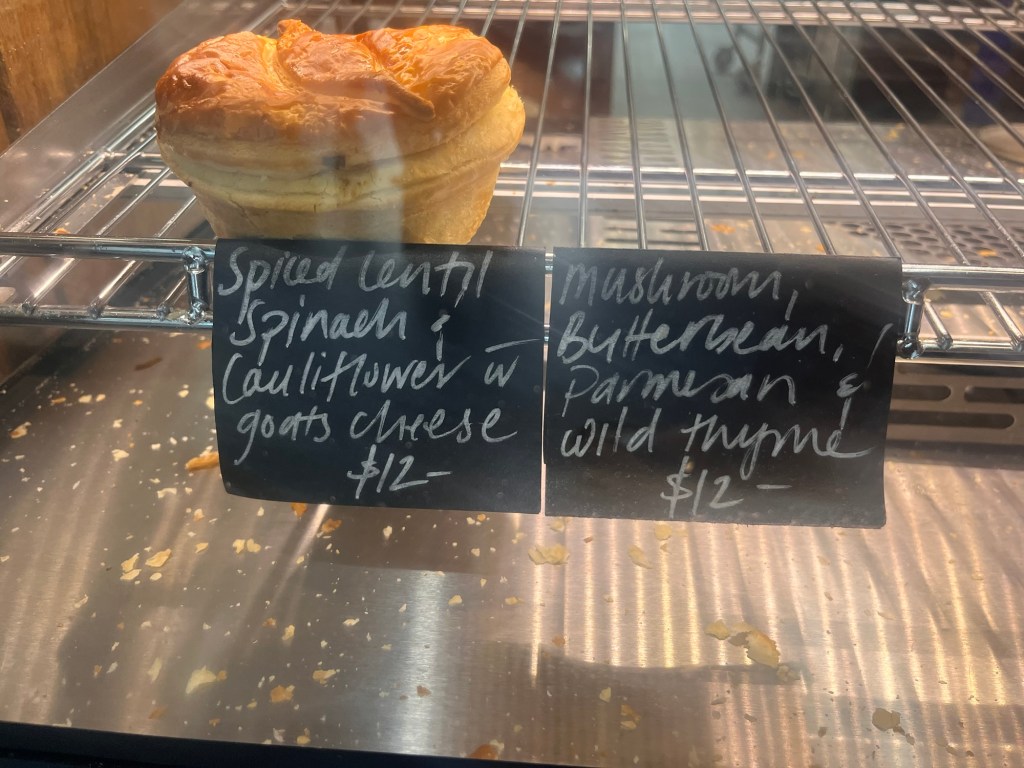 Spiced Lentil
Spinach &
Cauliflower w
goats cheese
$12-
Mushroom,
Butterbean,
Parmesan &
wild thyme
$12-